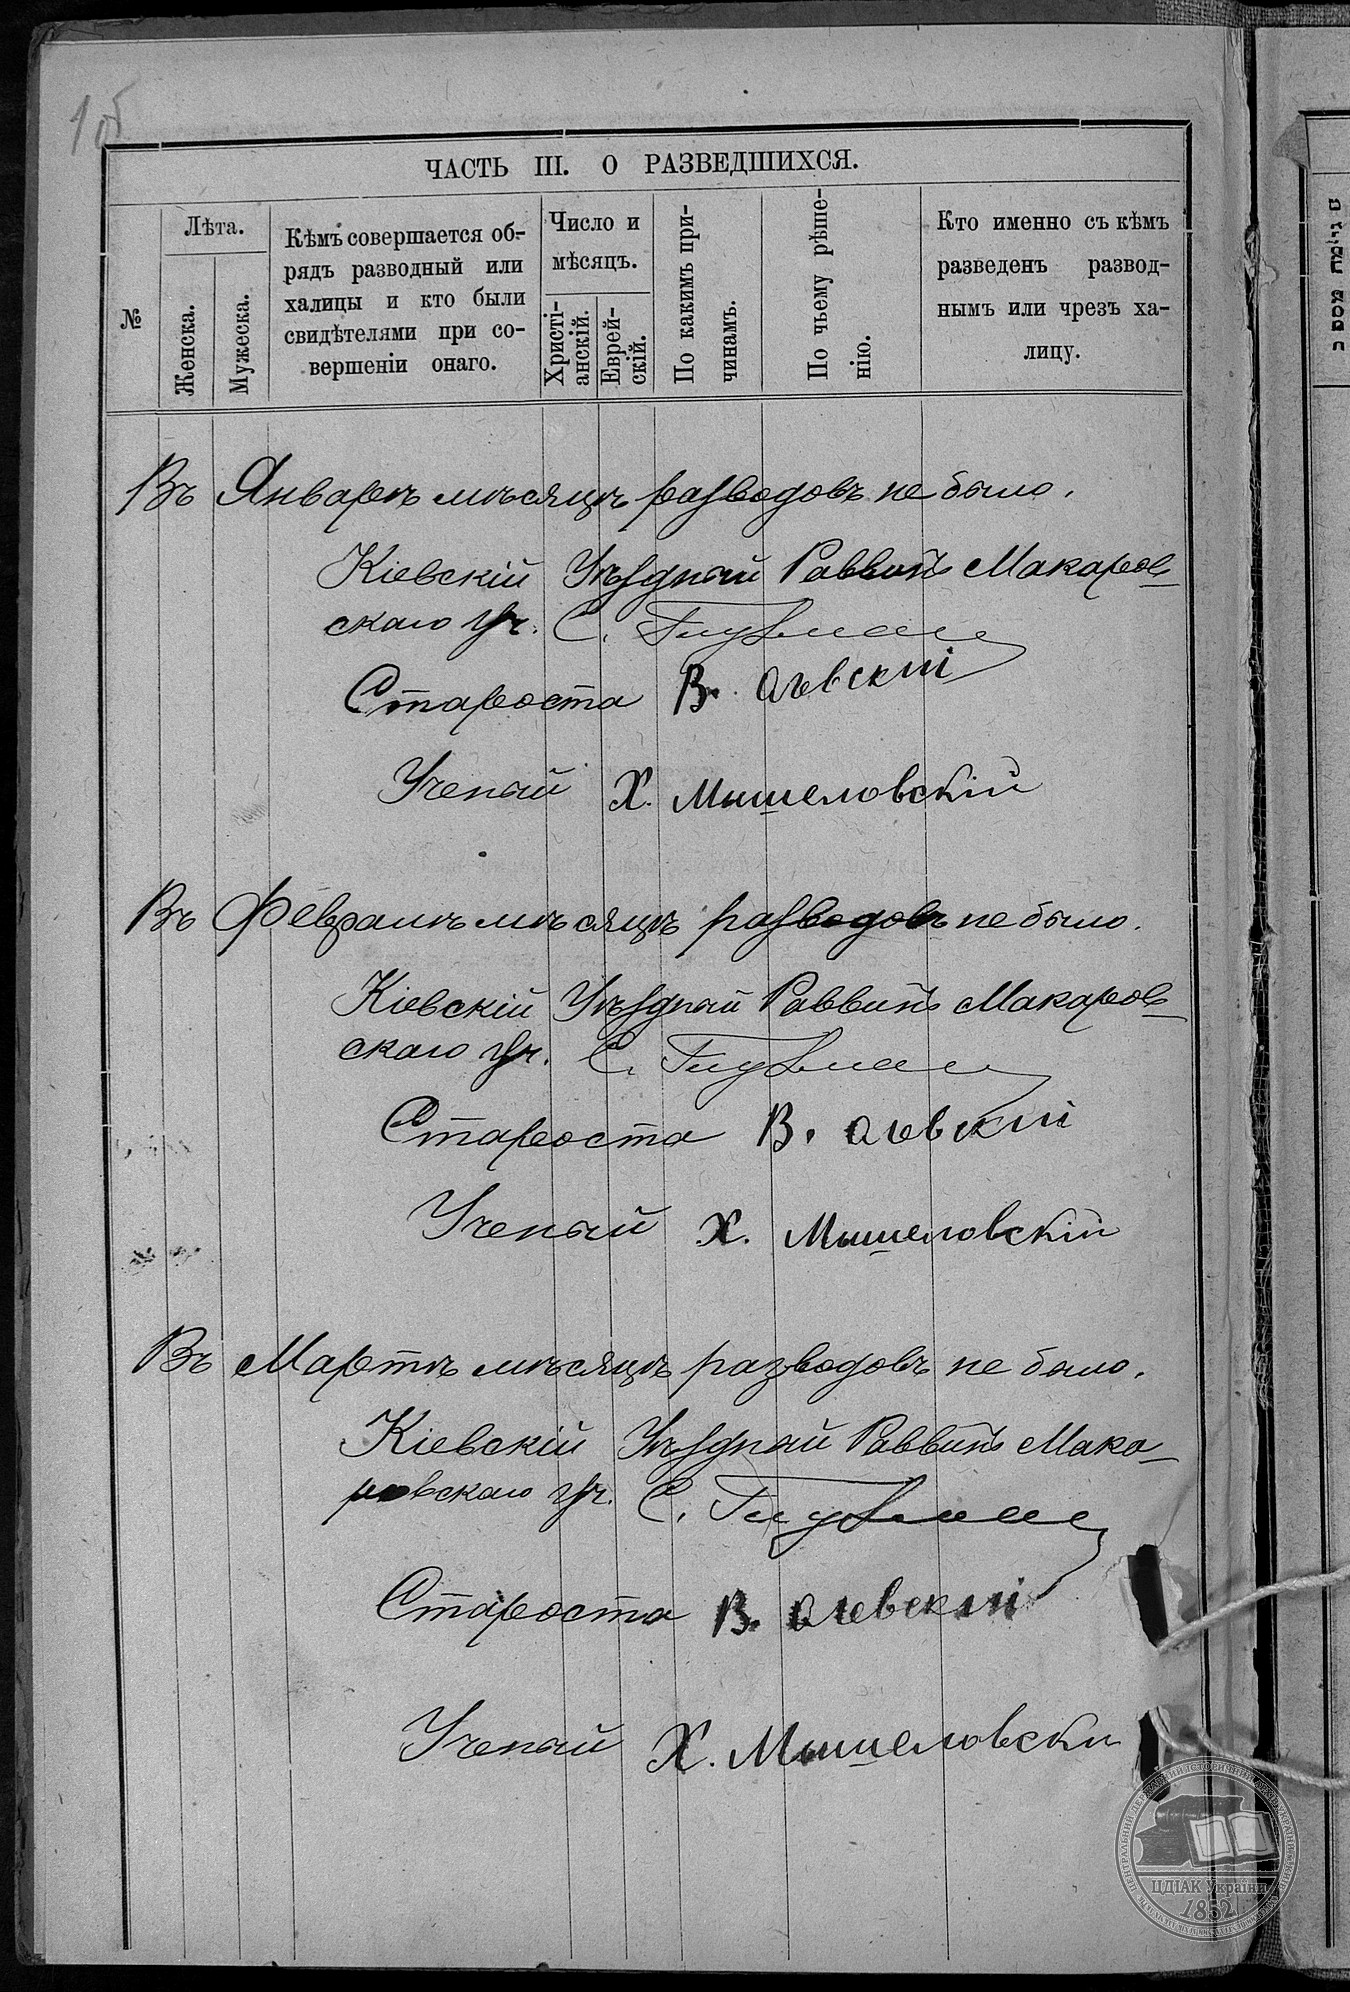 1об
ЧАСТЬ III. О РАЗВЕДШИХСЯ.
№
Лѣта.
Женска.
Мужеска.
Кѣмъ совершается об-
рядъ разводный или
халицы и кто были
свидѣтелями при со-
вершеніи онаго.
Число и
мѣсяцъ.
Христі-
анскій.
Еврей-
скій.
По какимъ при-
чинамъ.
По чьему рѣше-
нію.
Кто именно съ кѣмъ
разведенъ развод-
нымъ или чрезъ ха-
лицу.
Въ Январѣ мѣсяцѣ разводовъ не было.
Кіевскій Уѣздный Раввинъ Макаров-
скаго уч. С.
Староста В.
Ученый Х. Мышеловскій
Въ Февралѣ мѣсяцѣ разводовъ не было.
Кіевскій Уѣздный Раввинъ Макаров-
скаго уч. С.
Староста В.
Ученый Х. Мышеловскій
Въ Мартѣ мѣсяцѣ разводовъ не было.
Кіевскій Уѣздный Раввинъ Мака-
ровскаго уч. С.
Староста В.
Ученый Х. Мышеловски
ЦДІАК України
1852